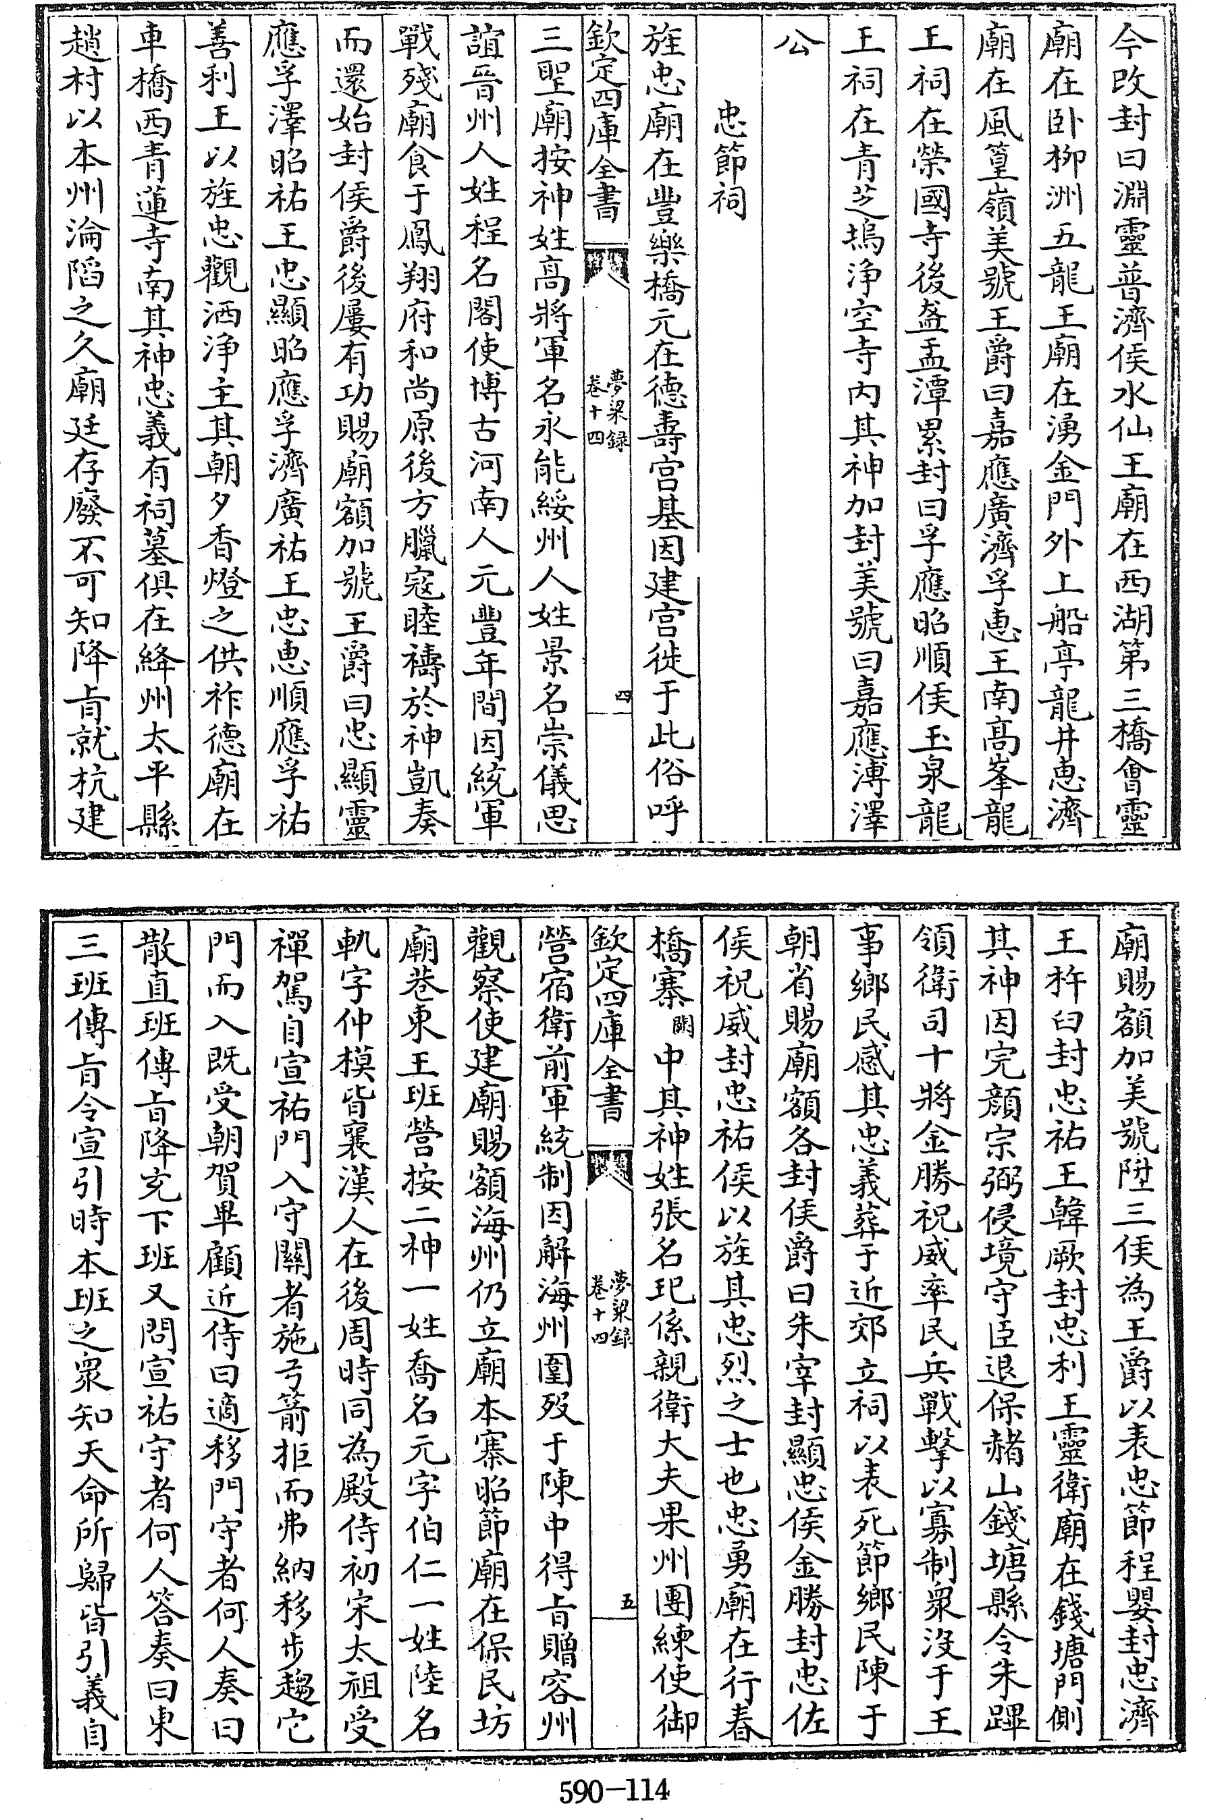 今改封曰淵靈普濟侯水仙王廟在西湖第三橋會靈
廟在卧柳洲五龍王廟在湧金門外上船亭龍井惠濟
廟在風篁嶺美號王爵曰嘉應廣濟孚惠王南高峯龍
王祠在榮國寺後盔盂潭累封曰孚應昭順侯玉泉龍
王祠在青芝塢淨空寺内其神加封美號曰嘉應溥澤
公
忠節祠
旌忠廟在豐樂橋元在德壽宫基因建宫徙于此俗呼
欽定四庫全書
夢粱録
卷十四
四
三聖廟按神姓高將軍名永能綏州人姓景名崇儀思
誼晉州人姓程名閣使博古河南人元豐年間因統軍
戰殁廟食于鳳翔府和尚原後方臘寇睦禱於神凱奏
而還始封侯爵後屢有功賜廟額加號王爵曰忠顯靈
應孚澤昭祐王忠顯昭應孚濟廣祐王忠惠順應孚祐
善利王以旌忠觀洒淨主其朝夕香燈之供祚德廟在
車橋西青蓮寺南其神忠義有祠墓俱在絳州太平縣
趙村以本州淪陷之久廟廷存廢不可知降㫖就杭建
廟賜額加美號陞三侯為王爵以表忠節程嬰封忠濟
王杵臼封忠祐王韓厥封忠利王靈衛廟在錢塘門側
其神因完顔宗弼侵境守臣退保赭山錢塘縣令朱蹕
領衛司十將金勝祝威率民兵戰擊以寡制衆沒于王
事鄉民感其忠義葬于近郊立祠以表死節鄉民陳于
朝省賜廟額各封侯爵曰朱宰封顯忠侯金勝封忠佐
侯祝威封忠祐侯以旌其忠烈之士也忠勇廟在行春
橋寨闕中其神姓張名玘係親衛大夫果州團練使御
欽定四庫全書
夢粱録
卷十四
五
營宿衛前軍統制因解海州圍殁于陳中得㫖贈容州
觀察使建廟賜額海州仍立廟本寨昭節廟在保民坊
廟巷東王班營按二神一姓喬名元字伯仁一姓陸名
軌字仲模皆襄漢人在後周時同為殿侍初宋太祖受
禪駕自宣祐門入守關者施弓箭拒而弗納移步趨它
門而入既受朝賀畢顧近侍曰適移門守者何人奏曰
散直班傳㫖降充下班又問宣祐守者何人答奏曰東
三班傳㫖令宣引時本班之衆知天命所歸皆引義自
590-114